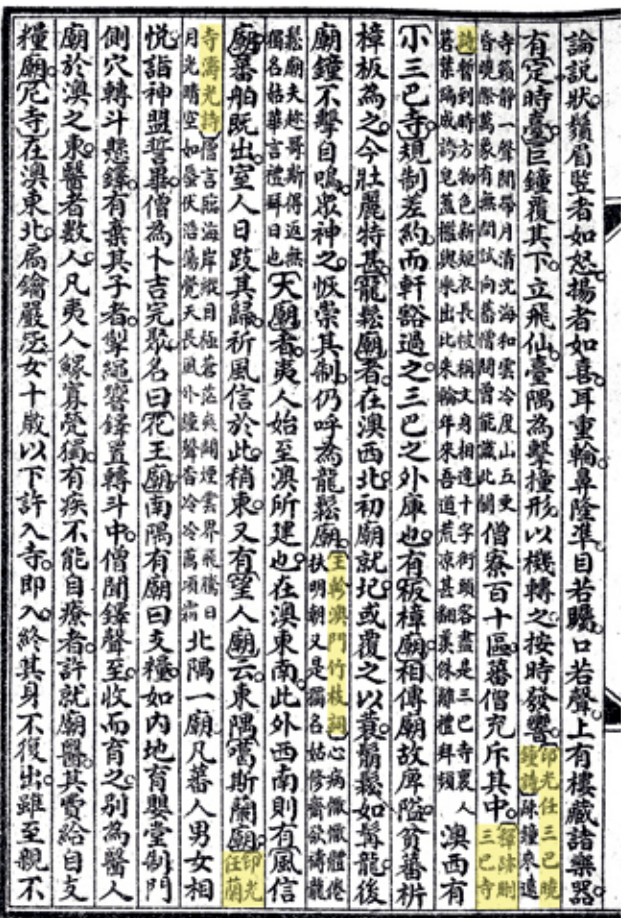 論說狀鬚眉豎者如怒揚者如喜耳重輪鼻隆準目若矚口若聲上有樓藏諸樂器
有定時臺巨鐘覆其下立飛仙臺隅為擊撞形以機轉之按時發響印光任三巴曉鐘詩疎鐘來遠
寺籟靜一聲聞帶月清沈海和雲冷度山五更昏曉際萬象有無間試向蕃僧問曾能識此關僧寮百十區蕃僧充斥其中釋跡刪三巴寺
詩暫到時方物色新短衣長袂稱文身相逢十字街頭客盡是三巴寺裏人箬葉編成誇皂蓋檻輿乘出比朱輪年來吾道荒凉甚翻羨侏離禮拜頻澳西有
小三巴寺規制差約而軒豁過之三巴之外庫也有板樟廟相傳廟故庳隘貧蕃析
樟板為之今壯麗特甚龍鬆廟者在澳西北初廟就圮或覆之以蓑鬅鬆如髯龍後
廟鐘不擊自鳴眾神之恢崇其制仍呼為龍鬆廟王軫澳門竹枝詞心病懨懨體倦扶明朝又是獨名姑修齋欲禱龍
鬆廟夫趁哥斯得返無獨名姑華言禮拜日也大廟者夷人始至澳所建也在澳東南此外西南則有風信
廟蕃舶既出室人日跂其歸祈風信於此稍東又有望人廟云東隅噶斯蘭廟印光任蘭
寺濤光詩僧言臨海岸縱目極蒼茫夾闢煙雲界飛騰日月光晴空如蜃伏浩蕩覺天長風外鐘聲杳泠泠萬頃霜北隅一廟凡蕃人男女相
悅詣神盟誓畢僧為卜吉完聚名曰花王廟南隅有廟曰支糧如內地育嬰堂制門
側穴轉斗懸鐸有棄其子者掣繩響鐸置轉斗中僧聞鐸聲至收而育之別為醫人
廟於澳之東醫者數人凡夷人鰥寡煢獨有疾不能自療者許就廟醫其費給自支
糧廟尼寺在澳東北扃鑰嚴丞女十歲以下許入寺即入終其身不復出雖至親不